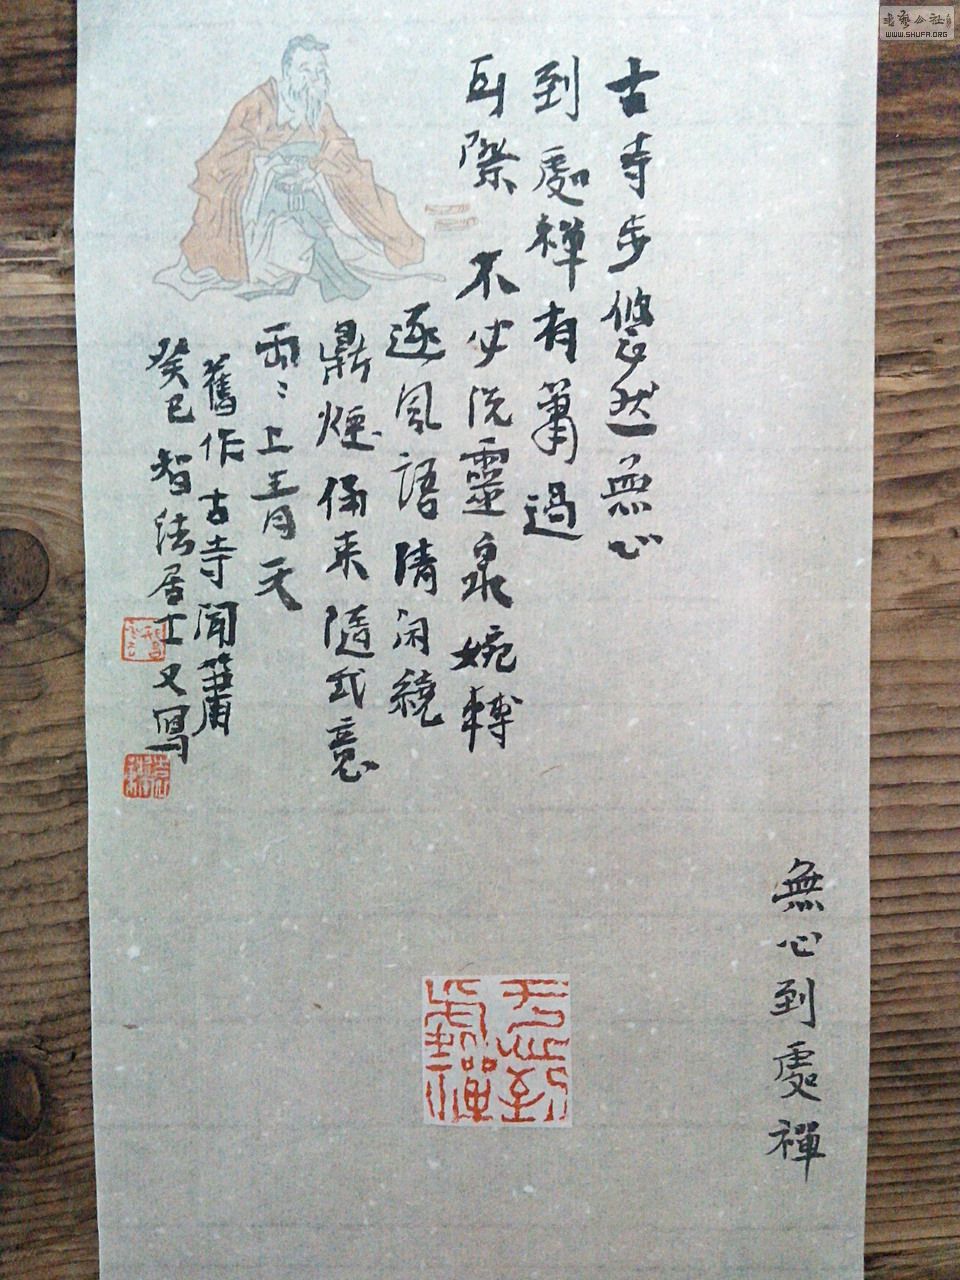 古寺步悠然無心
到處禪有簫過
耳際 不必洗靈泉婉轉
逐風語清閑繞
鼎煙俑来隨我意
雨:上青天
舊作古寺聞簫
癸巳智法居士又寫
無心到處禪
无心到處禪
WWW.SHUFA.ORG